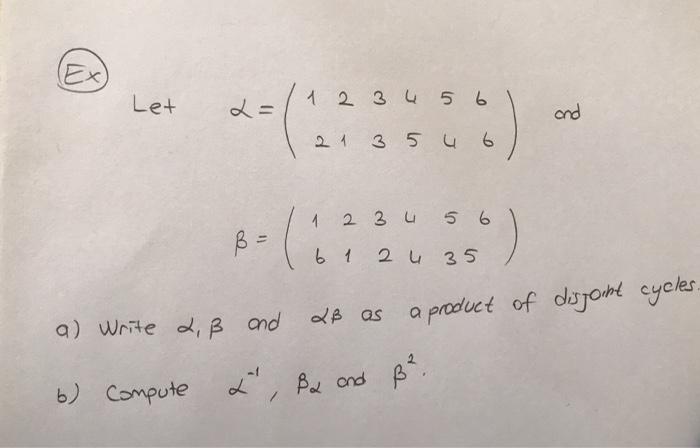 Ex
Let α = ( 1 2 3 4 5 6 ) and
2 1 3 5 4 6
β = ( 1 2 3 4 5 6 )
6 1 2 4 3 5
a) Write α, β and αβ as a product of disjoint cycles.
b) Compute α⁻¹, βα and β².